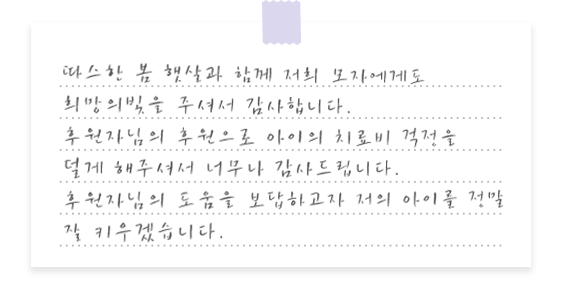 따스한 봄 햇살과 함께 저희 모자에게도
희망의빛을 주셔서 감사합니다.
후원자님의 후원으로 아이의 치료비 걱정을
덜게 해주셔서 너무나 감사드립니다.
후원자님의 도움을 보답하고자 저의 아이를 정말
잘 키우겠습니다.